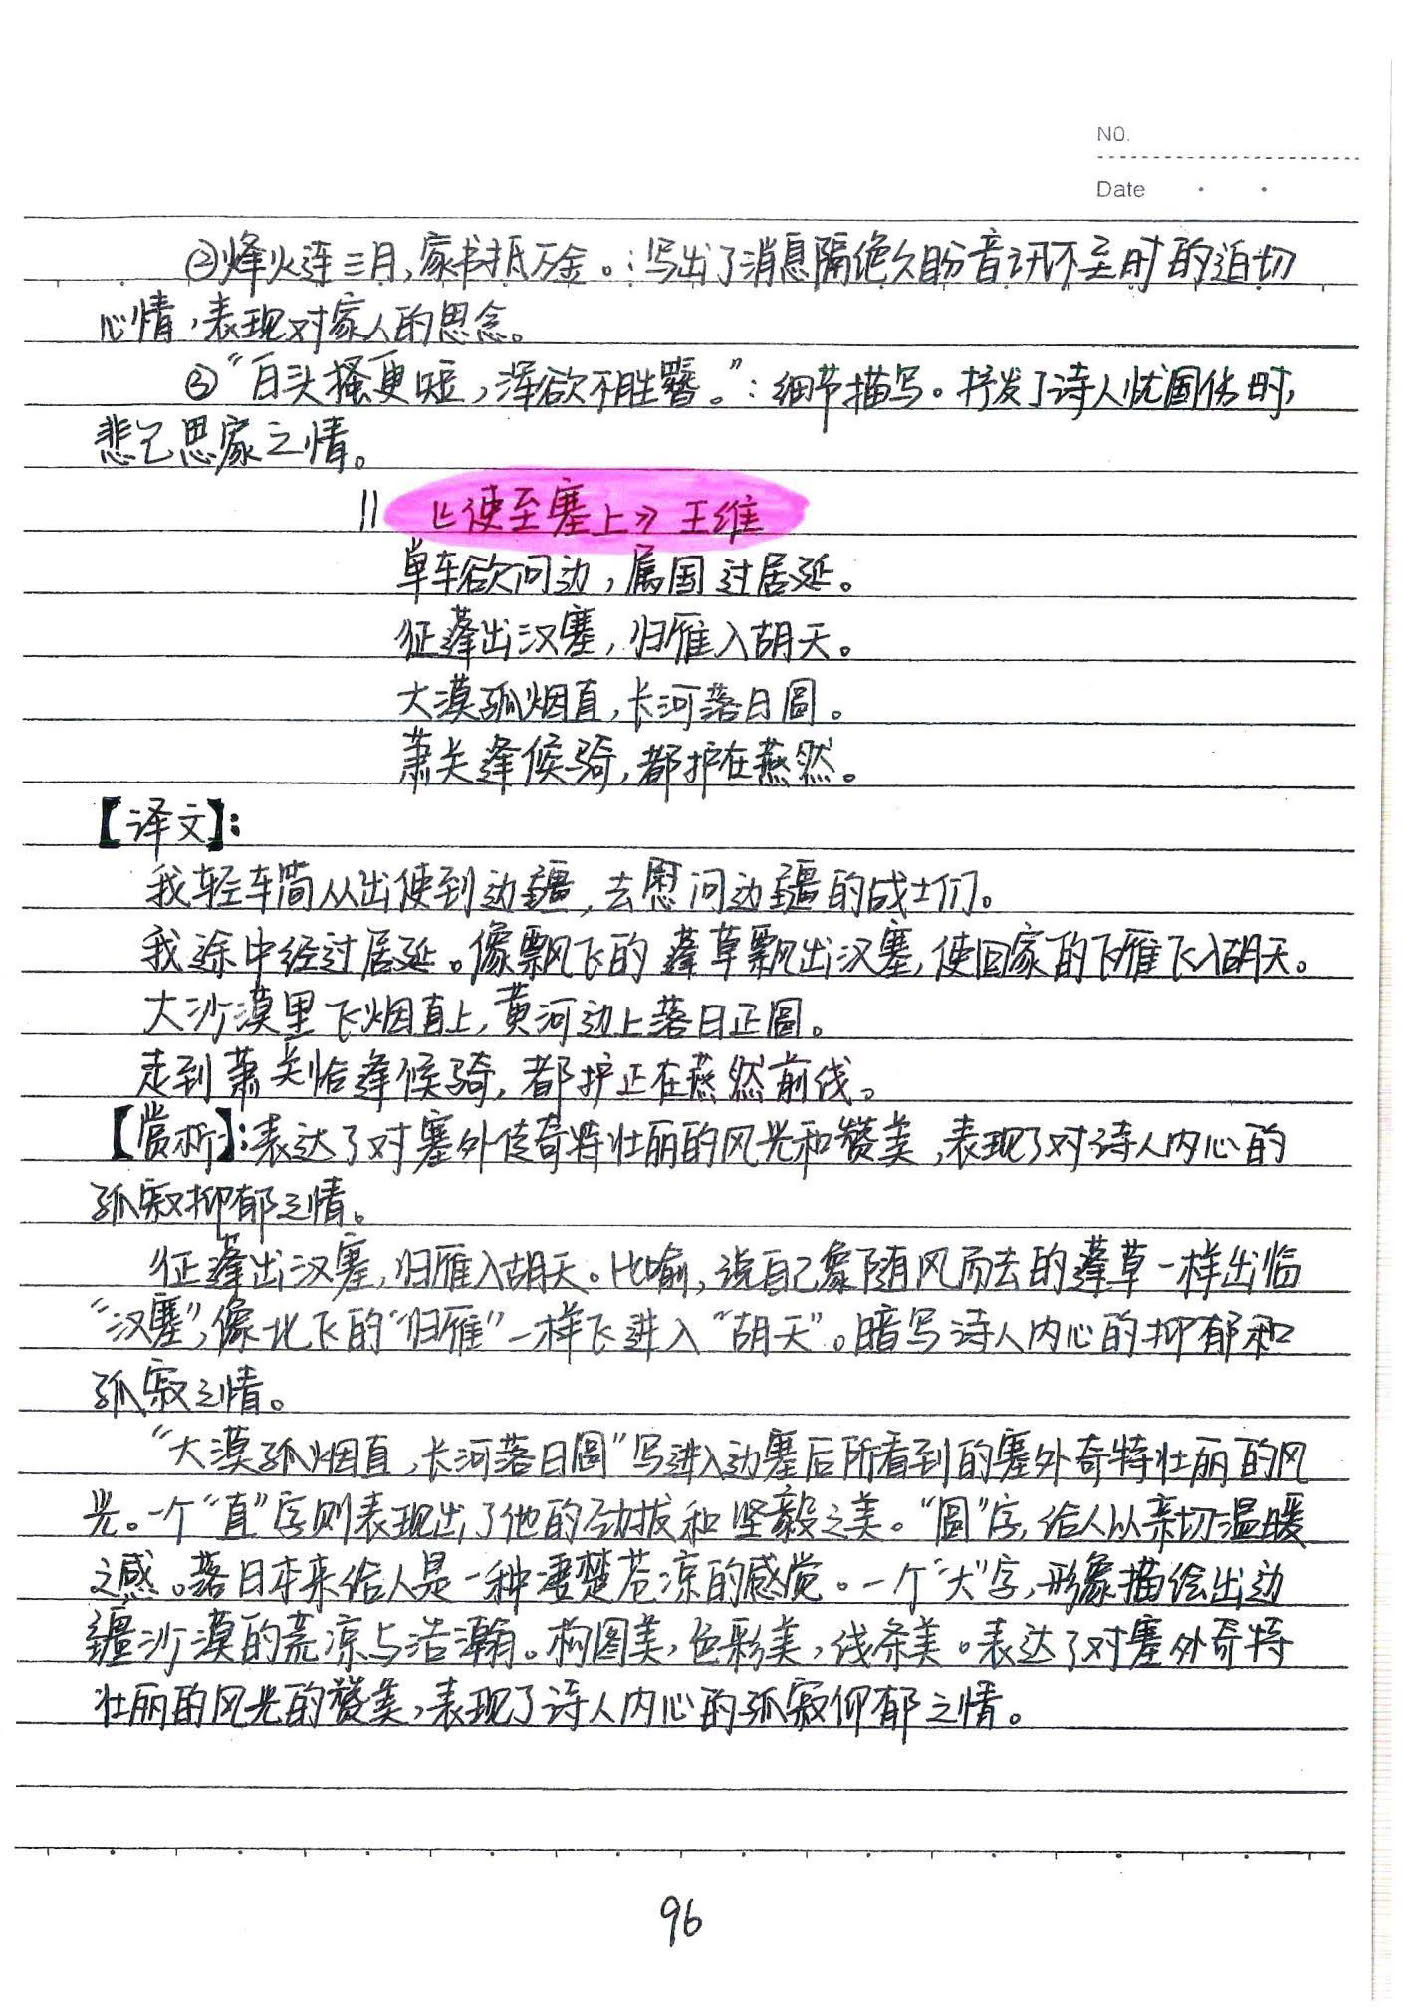 NO.
Date
②烽火连三月,家书抵万金。:写出了消息隔绝久盼音讯不至时的迫切
心情,表现对家人的思念。
③“白头搔更短,浑欲不胜簪。”:细节描写。抒发了诗人忧国伤时,
悲己思家之情。
11 《使至塞上》王维
单车欲问边,属国过居延。
征蓬出汉塞,归雁入胡天。
大漠孤烟直,长河落日圆。
萧关逢候骑,都护在燕然。
【译文】:
我轻车简从出使到边疆,去慰问边疆的战士们。
我途中经过居延。像飘飞的蓬草飘出汉塞,使回家的飞雁飞入胡天。
大沙漠里飞烟直上,黄河边上落日正圆。
走到萧关恰逢候骑,都护正在燕然前线。
【赏析】:表达了对塞外传奇特壮丽的风光和赞美,表现了对诗人内心的
孤寂抑郁之情。
征蓬出汉塞,归雁入胡天。比喻,说自己象随风而去的蓬草一样出临
“汉塞”,像北飞的“归雁”一样飞进入“胡天”。暗写诗人内心的抑郁和
孤寂之情。
“大漠孤烟直,长河落日圆”写进入边塞后所看到的塞外奇特壮丽的风
光。一个“直”字则表现出了他的劲拔和坚毅之美。“圆”字,给人以亲切温暖
之感。落日本来给人是一种凄楚苍凉的感觉。一个“大”字,形象描绘出边
疆沙漠的荒凉与浩瀚。构图美,色彩美,线条美。表达了对塞外奇特
壮丽的风光的赞美,表现了诗人内心的孤寂仰郁之情。
96